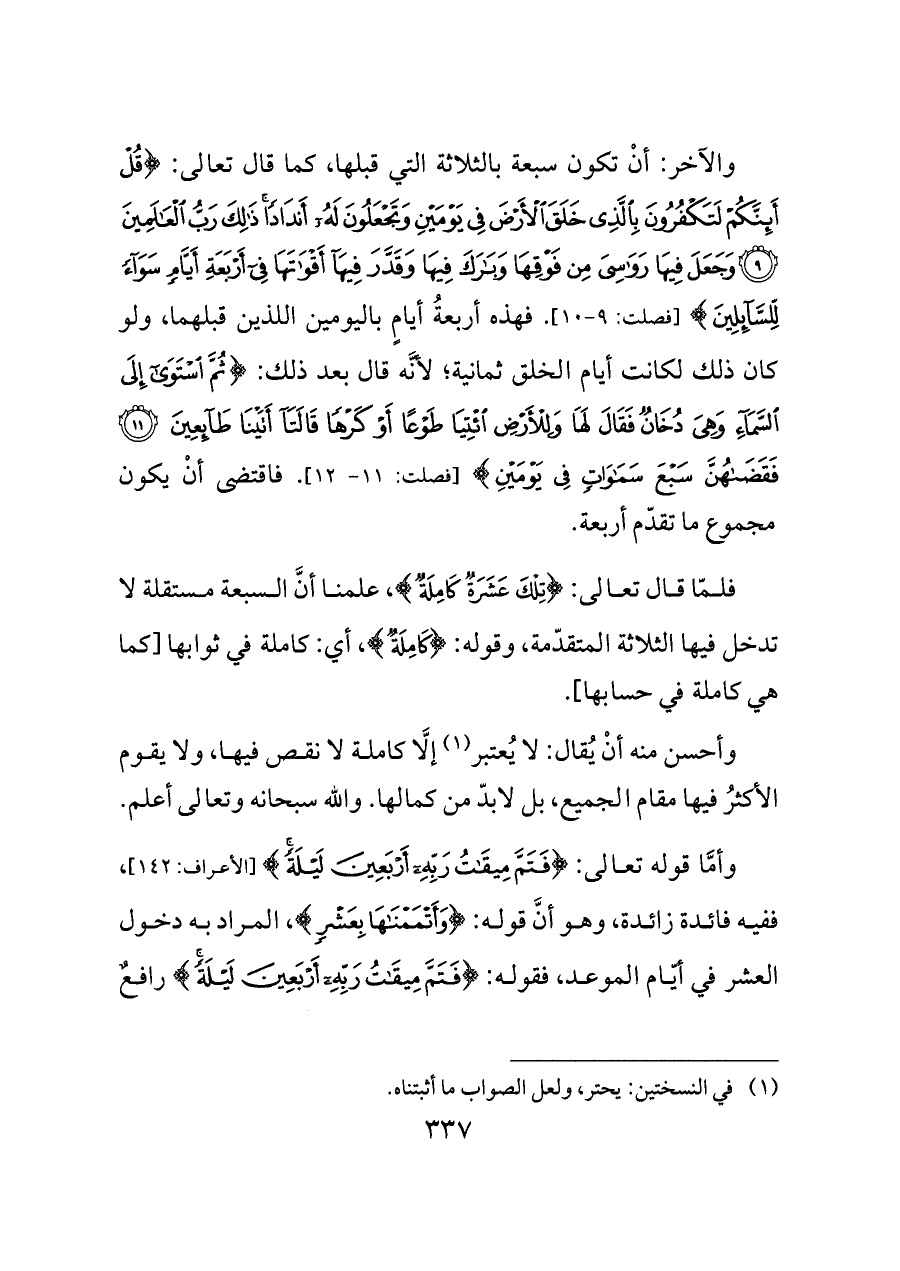 والآخر: أنْ تكون سبعة بالثلاثة التي قبلها، كما قال تعالى: ﴿قُلْ
أَئِنَّكُمْ لَتَكْفُرُونَ بِالَّذِي خَلَقَ الْأَرْضَ فِي يَوْمَيْنِ وَتَجْعَلُونَ لَهُۥ أَندَادًا ۚ ذَٰلِكَ رَبُّ الْعَالَمِينَ
۝٩ وَجَعَلَ فِيهَا رَوَاسِيَ مِن فَوْقِهَا وَبَارَكَ فِيهَا وَقَدَّرَ فِيهَآ أَقْوَاتَهَا فِىٓ أَرْبَعَةِ أَيَّامٍ سَوَآءً
لِّلسَّآئِلِينَ﴾ [فصلت: ٩-١٠]. فهذه أربعةُ أيامٍ باليومين اللذين قبلهما، ولو
كان ذلك لكانت أيام الخلق ثمانية؛ لأنَّه قال بعد ذلك: ﴿ثُمَّ ٱسْتَوَىٰٓ إِلَى
ٱلسَّمَآءِ وَهِىَ دُخَانٌ فَقَالَ لَهَا وَلِلْأَرْضِ ٱئْتِيَا طَوْعًا أَوْ كَرْهًا قَالَتَآ أَتَيْنَا طَآئِعِينَ ۝١١
فَقَضَىٰهُنَّ سَبْعَ سَمَٰوَاتٍ فِى يَوْمَيْنِ﴾ [فصلت: ١١- ١٢]. فاقتضى أنْ يكون
مجموع ما تقدّم أربعة.
فلمّا قال تعالى: ﴿تِلْكَ عَشَرَةٌ كَامِلَةٌ﴾، علمنا أنَّ السبعة مستقلة لا
تدخل فيها الثلاثة المتقدّمة، وقوله: ﴿كَامِلَةٌ﴾، أي: كاملة في ثوابها [كما
هي كاملة في حسابها].
وأحسن منه أنْ يُقال: لا يُعتبر(١) إلَّا كاملة لا نقص فيها، ولا يقوم
الأكثرُ فيها مقام الجميع، بل لابدّ من كمالها. والله سبحانه وتعالى أعلم.
وأمَّا قوله تعالى: ﴿فَتَمَّ مِيقَٰتُ رَبِّهِۦٓ أَرْبَعِينَ لَيْلَةً ۚ﴾ [الأعراف: ١٤٢]،
ففيه فائدة زائدة، وهو أنَّ قوله: ﴿وَأَتْمَمْنَٰهَا بِعَشْرٍ﴾، المراد به دخول
العشر في أيّام الموعد، فقوله: ﴿فَتَمَّ مِيقَٰتُ رَبِّهِۦٓ أَرْبَعِينَ لَيْلَةً ۚ﴾ رافعٌ
(١) في النسختين: يحتر، ولعل الصواب ما أثبتناه.
٣٣٧